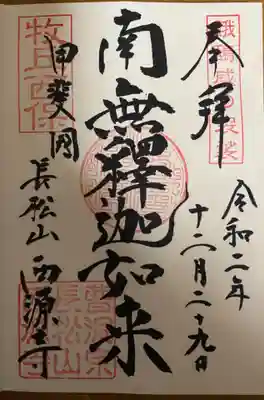 奉拝
令和二年
十二月二十九日
南無釋迦如来
甲斐国
長松山
西源寺
牧丘西保